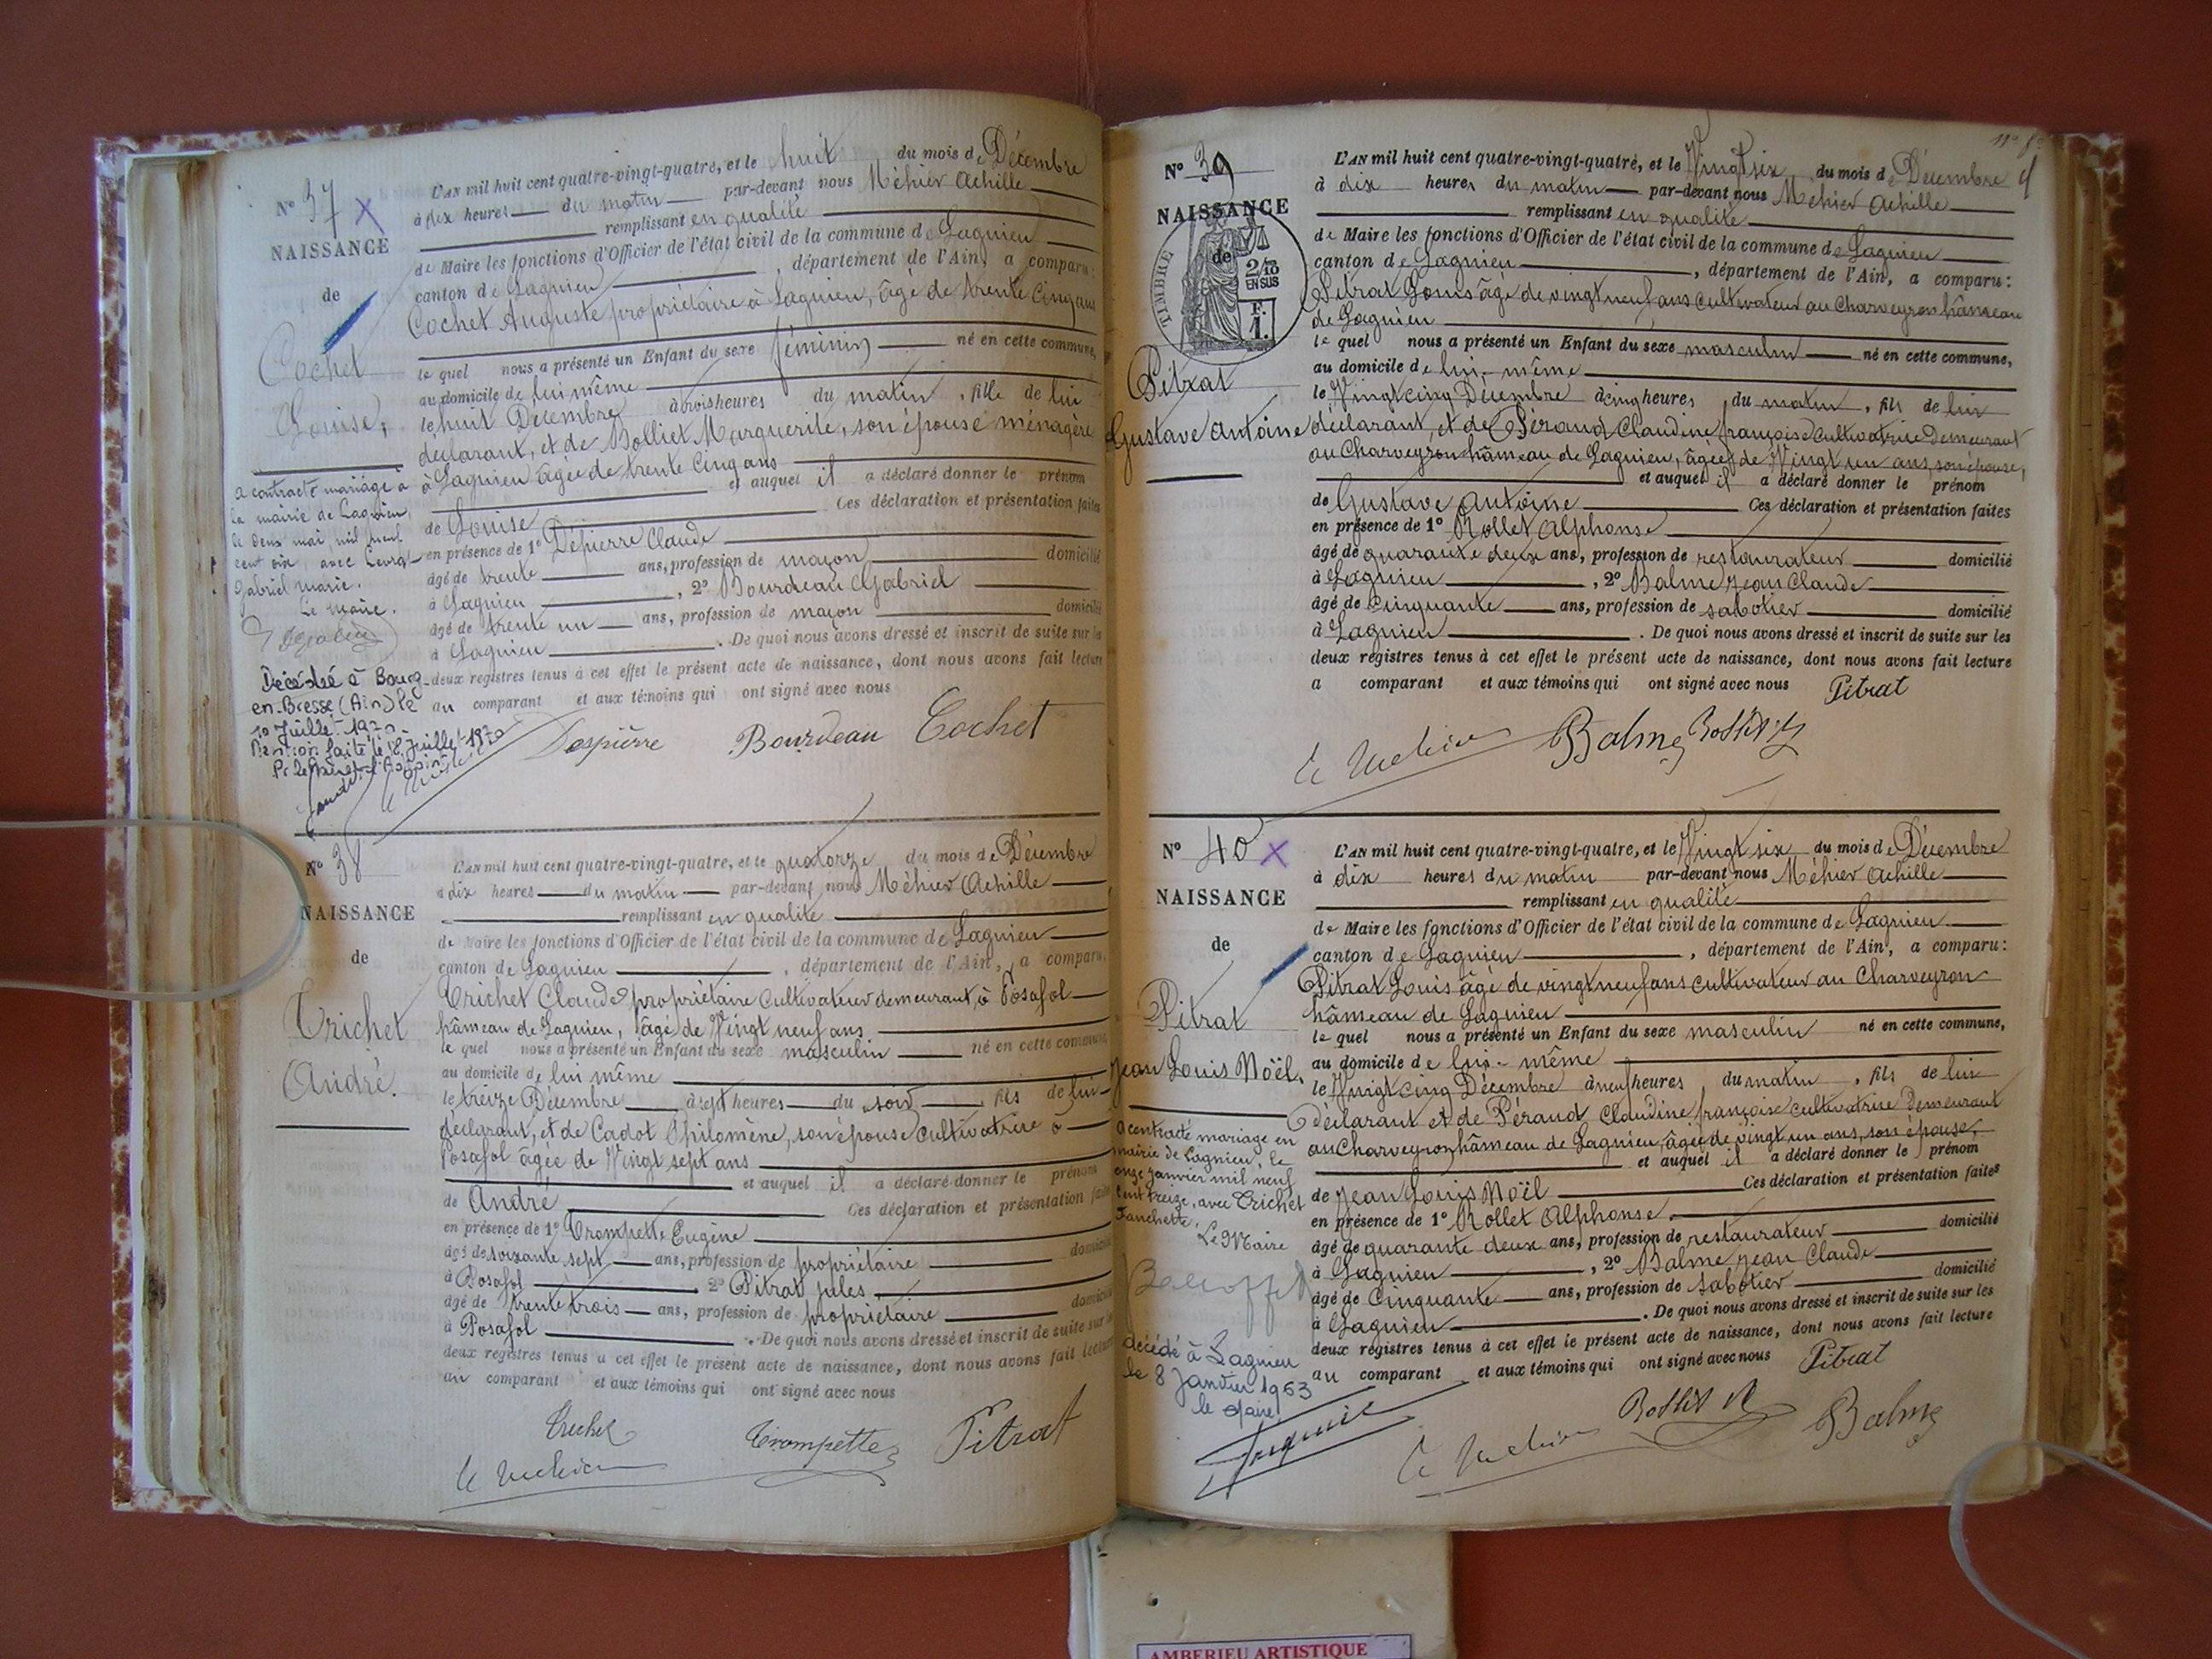 N° 37 X
NAISSANCE
de
Cochet
Louise,
a contracté mariage à
la mairie de Lagnieu
le deux mai, mil neuf
cent six, avec
Gabriel Marie.
Le Maire.
Décédée à Bourg-
en-Bresse (Ain) le
10 Juillet 1970
Mention faite le Juillet 1970
L'AN mil huit cent quatre-vingt-quatre, et le huit du mois de Décembre
à dix heures du matin par-devant nous Méhier Achille
remplissant en qualité
de Maire les fonctions d'Officier de l'état civil de la commune de Lagnieu
canton de Lagnieu , département de l'Ain, a comparu:
Cochet Auguste propriétaire à Lagnieu, âgé de trente cinq ans
le quel nous a présenté un Enfant du sexe féminin né en cette commune,
au domicile de lui même
le huit Décembre à trois heures du matin , fille de lui
déclarant, et de Bolliet Marguerite, son épouse ménagère
à Lagnieu âgée de trente cinq ans
et auquel il a déclaré donner le prénom
de Louise Ces déclaration et présentation faites
en présence de 1° Dépierre Claude
âgé de trente ans, profession de maçon domicilié
à Lagnieu , 2° Bourdeau Gabriel
âgé de trente un ans, profession de maçon domicilié
à Lagnieu . De quoi nous avons dressé et inscrit de suite sur les
deux registres tenus à cet effet le présent acte de naissance, dont nous avons fait lecture
au comparant et aux témoins qui ont signé avec nous
Despierre Bourdeau Cochet
N° 38
NAISSANCE
de
Trichet
André.
L'AN mil huit cent quatre-vingt-quatre, et le quatorze du mois de Décembre
à dix heures du matin par-devant nous Méhier Achille
remplissant en qualité
de Maire les fonctions d'Officier de l'état civil de la commune de Lagnieu
canton de Lagnieu , département de l'Ain, a comparu,
Trichet Claude propriétaire cultivateur demeurant à Posafol
hâmeau de Lagnieu, âgé de Vingt neuf ans
le quel nous a présenté un Enfant du sexe masculin né en cette commune
au domicile de lui même
le treize Décembre à sept heures du soir fils de lui
déclarant, et de Cadot Philomène, son épouse cultivatrice à
Posafol âgée de Vingt sept ans
et auquel il a déclaré donner le prénom
de André Ces déclaration et présentation faites
en présence de 1° Trompette Eugène
âgé de soixante sept ans, profession de propriétaire domicilié
à Posafol 2° Pitrat jules
âgé de trente trois ans, profession de propriétaire domicilié
à Posafol . De quoi nous avons dressé et inscrit de suite sur les
deux registres tenus à cet effet le présent acte de naissance, dont nous avons fait lecture
au comparant et aux témoins qui ont signé avec nous
Trichet Trompette Pitrat
N° 39
NAISSANCE
de
TIMBRE
2/10
EN SUS
F.
1.
Pitrat
Gustave Antoine
L'AN mil huit cent quatre-vingt-quatre, et le Vingt six du mois de Décembre
à dix heures du matin par-devant nous Méhier Achille
remplissant en qualité
de Maire les fonctions d'Officier de l'état civil de la commune de Lagnieu
canton de Lagnieu , département de l'Ain, a comparu:
Pitrat Louis âgé de vingt neuf ans cultivateur au Charveyron hâmeau
de Lagnieu
le quel nous a présenté un Enfant du sexe masculin né en cette commune,
au domicile de lui-même
le Vingt cinq Décembre à cinq heures du matin , fils de lui
déclarant, et de Péraud Claudine françoise cultivatrice demeurant
au Charveyron hâmeau de Lagnieu, âgée de Vingt un ans, son épouse,
et auquel il a déclaré donner le prénom
de Gustave Antoine Ces déclaration et présentation faites
en présence de 1° Rollet Alphonse
âgé de quarante deux ans, profession de restaurateur domicilié
à Lagnieu , 2° Balme Jean Claude
âgé de cinquante ans, profession de sabotier domicilié
à Lagnieu . De quoi nous avons dressé et inscrit de suite sur les
deux registres tenus à cet effet le présent acte de naissance, dont nous avons fait lecture
a comparant et aux témoins qui ont signé avec nous Pitrat
Balme
N° 40 X
NAISSANCE
de
Pitrat
Jean Louis Noël.
a contracté mariage en
mairie de Lagnieu, le
onze janvier mil neuf
cent treize, avec Trichet
Fanchette.
Le Maire
décédé à Lagnieu
le 8 Janvier 1963
le Maire
L'AN mil huit cent quatre-vingt-quatre, et le Vingt six du mois de Décembre
à dix heures du matin par-devant nous Méhier Achille
remplissant en qualité
de Maire les fonctions d'Officier de l'état civil de la commune de Lagnieu
canton de Lagnieu , département de l'Ain, a comparu:
Pitrat Louis âgé de vingt neuf ans cultivateur au Charveyron
hâmeau de Lagnieu
le quel nous a présenté un Enfant du sexe masculin né en cette commune,
au domicile de lui-même
le Vingt cinq Décembre à neuf heures du matin , fils de lui
déclarant et de Péraud Claudine françoise cultivatrice demeurant
au Charveyron hâmeau de Lagnieu, âgée de vingt un ans, son épouse,
et auquel il a déclaré donner le prénom
de Jean Louis Noël Ces déclaration et présentation faites
en présence de 1° Rollet Alphonse,
âgé de quarante deux ans, profession de restaurateur domicilié
à Lagnieu , 2° Balme Jean Claude
âgé de Cinquante ans, profession de sabotier domicilié
à Lagnieu . De quoi nous avons dressé et inscrit de suite sur les
deux registres tenus à cet effet le présent acte de naissance, dont nous avons fait lecture
au comparant et aux témoins qui ont signé avec nous Pitrat
Balme
AMBERIEU ARTISTIQUE